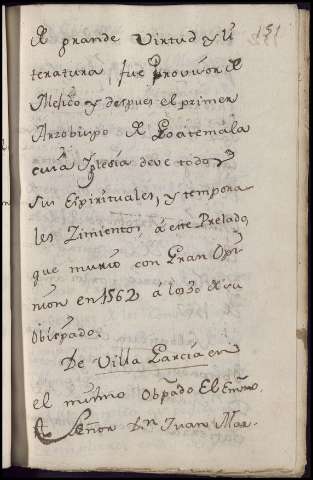 151
de grande Virtud y Li
teratura, fue Provisor de
Mejico y despues el primer
Arzobispo de Goatemala
cuia Yglesia deve todos
sus Espirituales, y tempora
les Zimientos, á este Prelado,
que murio con Gran Opi
nion en 1562 á los 30 de su
Obispado.
De Villa Garcia en
el mismo Obpãdo El Emõ.
Señor Dn Juan Mar.